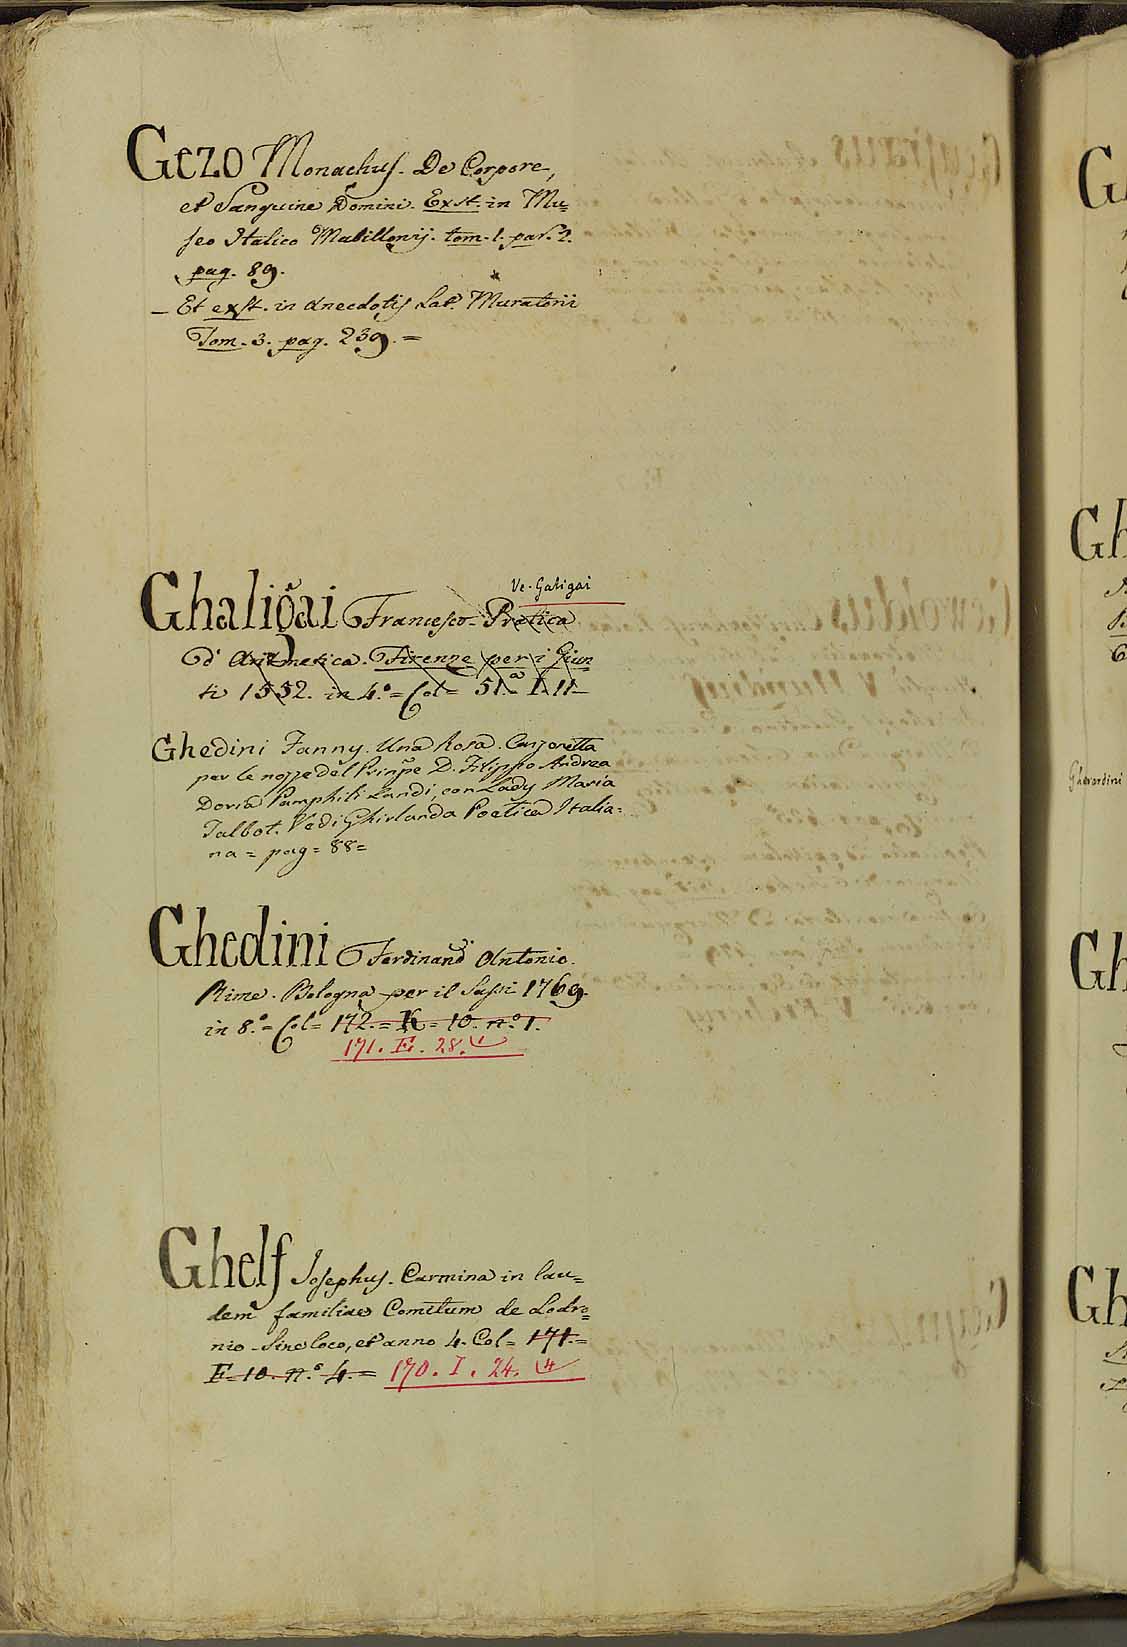 Gezo Monachus. De Corpore,
et Sanguine Domini. Exst. in Mu=
seo Italico Mabillonij. tom. 1. par. 2.
pag. 89.
– Et exst. in Anecdotis Lat. Muratorii
Tom. 3. pag. 239. =
Ve. Galigai
Ghaligai Francesco. Pratica
d'Aritmetica. Firenze per i Giun
ti 1552. in 4.º = Col = 51. I. 11.
Ghedini Fanny. Una Rosa. Canzonetta
per le nozze del Prinpe D. Filippo Andrea
Doria Pamphili Landi, con Lady Maria
Talbot. Vedi Ghirlanda Poetica Italia=
na = pag = 88 =
Ghedini Ferdinando Antonio.
Rime. Bologna per il Sassi 1769.
in 8.º = Col = 172. = K = 10. n.º 1.
171. E. 28. 1
Ghelf Josephus. Carmina in lau=
dem familiae Comitum de Lodro=
nio. Sine loco, et anno 4. Col = 171. =
F. 10. n.º 4. = 170. I. 24. 4
Gherardini